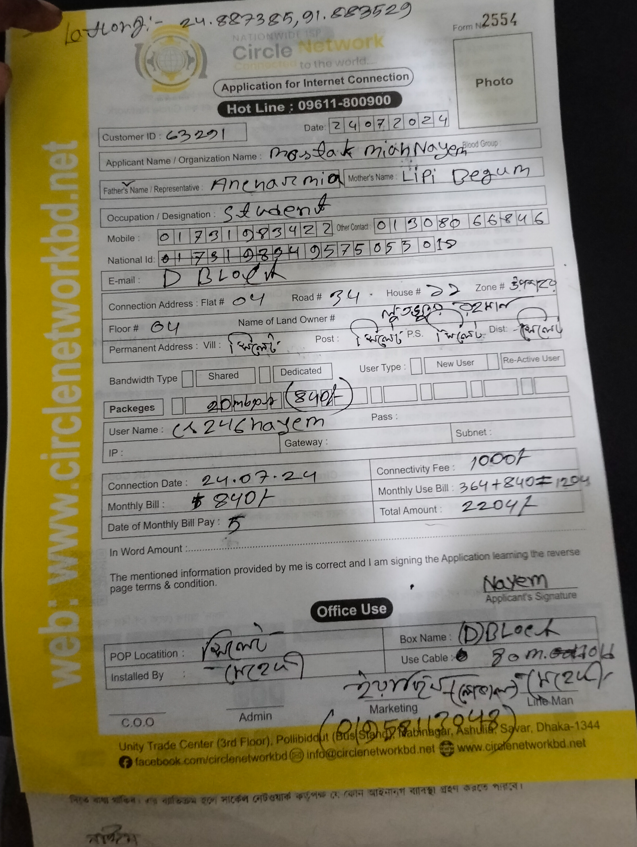 Lat Long:- 24.887385, 91.883529
Form No 2554
NATIONWIDE ISP
Circle Network
Connected to the world...
Application for Internet Connection
Photo
Hot Line : 09611-800900
Customer ID : 63291
Date: 24072024
Applicant Name / Organization Name : Mostak Miah Nayem Blood Group :
Father's Name / Representative : Mother's Name : Lipi Begum
Occupation / Designation : Student
Mobile : 01731983422 Other Contact 01308066846
National Id:
E-mail : D BLock
Connection Address : Flat# 04 Road # 34 House # 22 Zone #
Floor # 04 Name of Land Owner #
Permanent Address : Vill : সিলেট Post : সিলেট P.S. সিলেট Dist: সিলেট
Bandwidth Type Shared Dedicated User Type : New User Re-Active User
Packeges 20mbps (840/-)
User Name : cs246nayem Pass :
IP : Gateway : Subnet :
Connection Date : 24.07.24 Connectivity Fee : 1000/-
Monthly Bill : 840/- Monthly Use Bill : 364+840=1204
Date of Monthly Bill Pay : 5 Total Amount : 2204/-
In Word Amount :
The mentioned information provided by me is correct and I am signing the Application learning the reverse
page terms & condition.
Nayem
Applicant's Signature
Office Use
POP Locatition : সিলেট Box Name : (D) BLock
Installed By : মেহেদী Use Cable : 80 m.
মেহেদী
C.O.O Admin Marketing Line Man
(01958113948)
Unity Trade Center (3rd Floor), Pollibiddut (Bus Stand), Nabinagar, Ashulia, Savar, Dhaka-1344
facebook.com/circlenetworkbd info@circlenetworkbd.net www.circlenetworkbd.net
web: www.circlenetworkbd.net